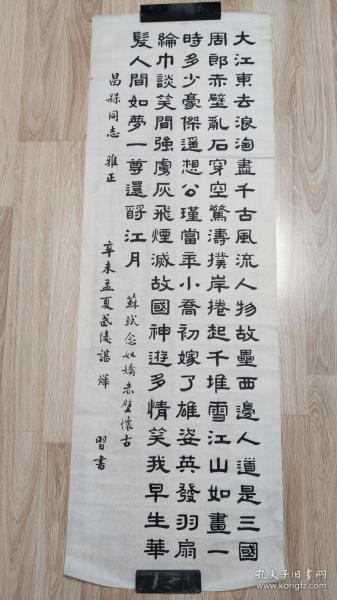 大江東去浪淘盡千古風流人物故壘西邊人道是三國
周郎赤壁亂石穿空驚濤撲岸捲起千堆雪江山如畫一
時多少豪傑遥想公瑾當年小喬初嫁了雄姿英發羽扇
綸巾談笑間强虜灰飛煙滅故國神遊多情笑我早生華
髮人間如夢一尊還酹江月
蘇軾念奴嬌赤壁懷古
昌祿同志 雅正
辛未孟夏武陵諶燁 習書
孔夫子旧书网